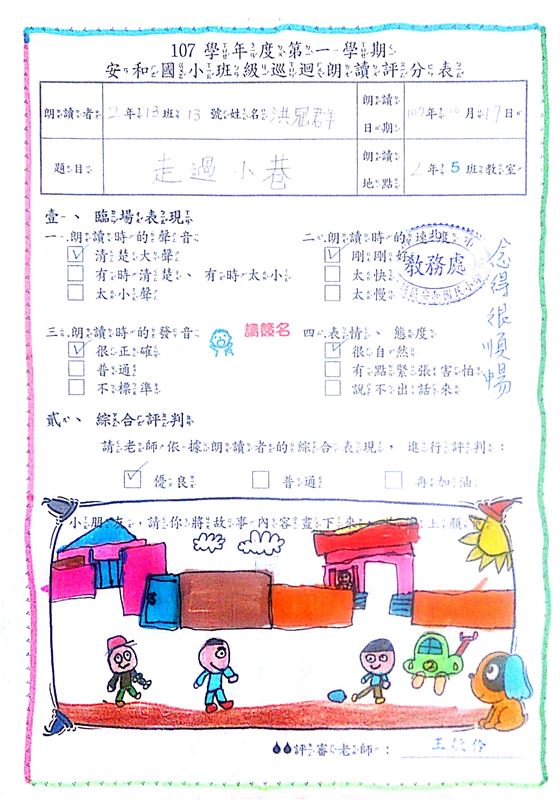 107 學年度第一學期
安和國小班級巡迴朗讀評分表
朗讀者 2年13班13號姓名 洪冠群
朗讀日期 107年10月17日
題目 走過小巷
朗讀地點 2年5班教室
壹、臨場表現
一、朗讀時的聲音
清楚大聲
有時清楚、有時太小
太小聲
二、朗讀時的速度
剛剛好
太快
太慢
教務處
三、朗讀時的發音
很正確
普通
不標準
請簽名
四、表情、態度
很自然
有點緊張害怕
說不出話來
念得很順暢
貳、綜合評判
請老師依據朗讀者的綜合表現，進行評判：
優良
普通
再加油
小朋友，請你將故事內容畫下來，
評審老師：王